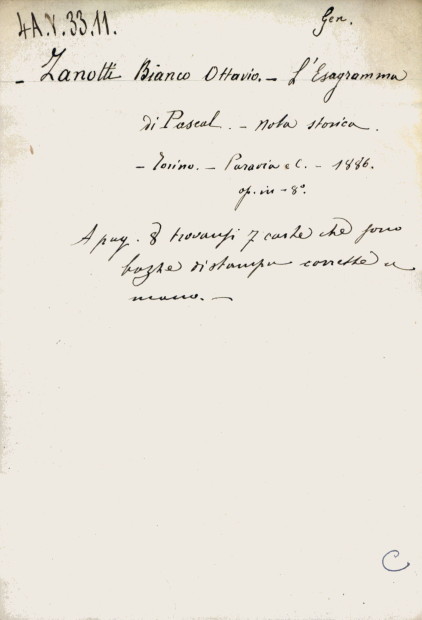 4A.V.33.11.
Gen.
- Zanotti Bianco Ottavio. - L'Esagramma
di Pascal. - nota storica.
- Torino. - Paravia e C. - 1886.
op. in - 8°.
A pag. 8 trovansi 7 carte che sono
bozze di stampa corrette a
mano. -
C